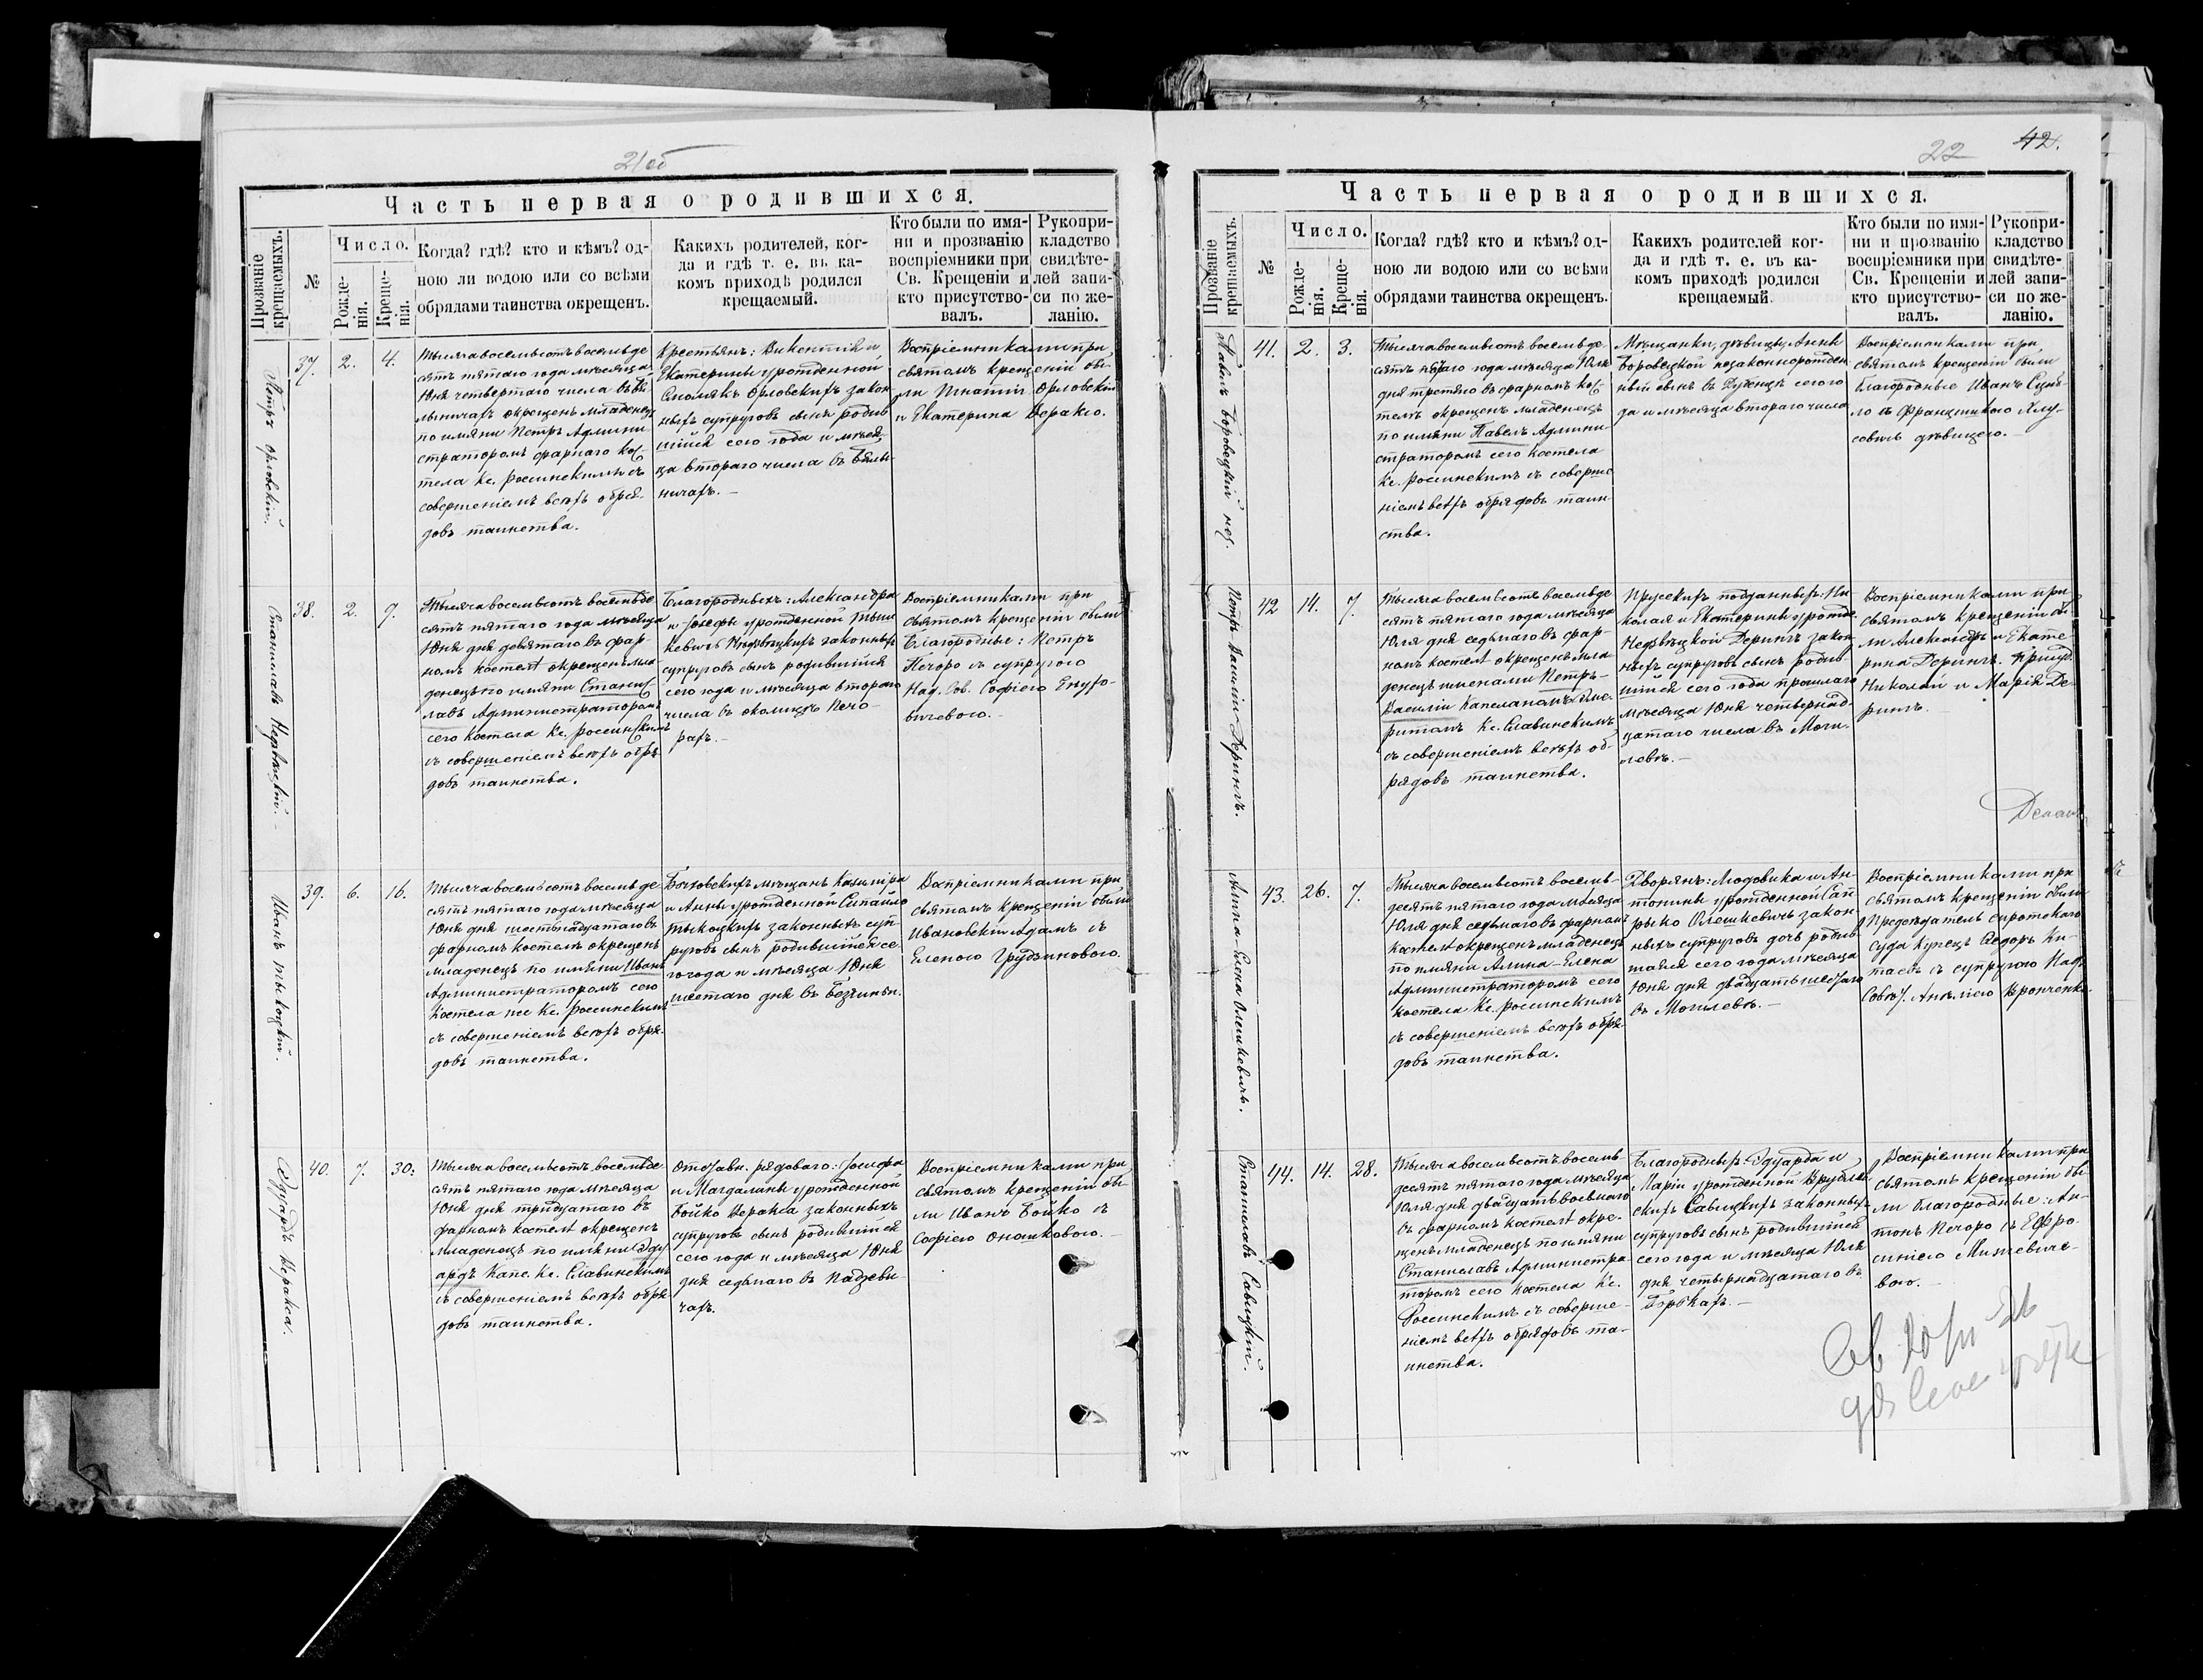 21об
Часть первая о родившихся.
Прозваніе крещаемыхъ.
№
Число.
Рожденія.
Крещенія.
Когда? гдѣ? кто и кѣмъ? од-
ною ли водою или со всѣми
обрядами таинства окрещенъ.
Какихъ родителей, ког-
да и гдѣ т. е. въ ка-
комъ приходѣ родился
крещаемый.
Кто были по имя-
ни и прозванію
воспріемники при
Св. Крещеніи и
кто присутство-
валъ.
Рукопри-
кладство
свидѣте-
лей запи-
си по же-
ланію.
Петръ Орловскій.
37. 2. 4.
Тысяча восемьсотъ восемьде
сятъ пятаго года мѣсяца
Юня четвертаго числа въ Бѣ
лыничахъ окрещенъ младенецъ
по имяни Петръ Админи
страторомъ фарнаго Кос
тела Кс. Россинскимъ съ
совершеніемъ всѣхъ обря-
довъ таинства.
Крестьянъ: Викентія и
Екатерины урожденной
Орловскихъ закон
ныхъ супруговъ сынъ родив
шійся сего года и мѣся
ца втораго числа въ Бѣлы-
ничахъ. —
Воспріемниками при
святомъ крещеніи бы-
ли Игнатій Орловскій
и Екатерина
Станиславъ
38. 2. 9.
Тысяча восемьсотъ восемьде
сятъ пятаго года мѣсяца
Юня дня девятаго въ фар-
номъ костелѣ окрещенъ мла
денецъ по имяни Станис
лавъ Администраторомъ
сего костела Кс. Россинскимъ
съ совершеніемъ всѣхъ обря
довъ таинства.
Благородныхъ: Александра
и Іосефы урожденной Тыш
кевичъ законныхъ
супруговъ сынъ родившійся
сего года и мѣсяца втораго
числа въ околицѣ Печо-
рахъ. —
Воспріемниками при
святомъ крещеніи были
Благородные: Петръ
Печоро съ супругою
Над. Сов. Софіею
39. 6. 16.
Иванъ
Тысяча восемьсотъ восемьде
сятъ пятаго года мѣсяца
Юня дня шестнадцатаго въ
фарномъ костелѣ окрещенъ
младенецъ по имяни Иванъ
Администраторомъ сего
Костела же Кс. Россинскимъ
съ совершеніемъ всѣхъ обря-
довъ таинства.
Быховскихъ мѣщанъ Казиміра
и Анны урожденной
законныхъ суп
руговъ сынъ родившійся се
го года и мѣсяца Юня
шестаго дня въ
Воспріемниками при
святомъ крещеніи были
Ивановскій Адамъ съ
Еленою Грудзиновою.
Эдуардъ
40. 7. 30.
Тысяча восемьсотъ восемьде
сятъ пятаго года мѣсяца
Юня дня тридцатаго въ
фарномъ костелѣ окрещенъ
младенецъ по имяни Эду
ардъ Капе. Кс. Славинскимъ
съ совершеніемъ всѣхъ обря
довъ таинства.
Отставн. рядоваго: Іосифа
и Магдалины урожденной
Бойко законныхъ
супруговъ сынъ родившійся
сего года и мѣсяца Юня
дня седьмаго въ Падзеви-
чахъ.
Воспріемниками при
святомъ крещеніи бы-
ли Иванъ Бойко съ
Софіею Онашковою. —
22 42.
Часть первая о родившихся.
Прозваніе крещаемыхъ.
№
Число.
Рожденія.
Крещенія.
Когда? гдѣ? кто и кѣмъ? од-
ною ли водою или со всѣми
обрядами таинства окрещенъ.
Какихъ родителей ког-
да и гдѣ т. е. въ ка-
комъ приходѣ родился
крещаемый.
Кто были по имя-
ни и прозванію
воспріемники при
Св. Крещеніи и
кто присутство-
валъ.
Рукопри-
кладство
свидѣте-
лей запи-
си по же-
ланію.
Павелъ Боровецкій нез.
41. 2. 3.
Тысяча восемьсотъ восемьде
сятъ пятаго года мѣсяца Юля
дня третяго въ фарномъ Кос
телѣ окрещенъ младенецъ
по имяни Павелъ Админи
страторомъ сего Костела
Кс. Россинскимъ съ соверше
ніемъ всѣхъ обрядовъ таин-
ства.
Мѣщанки, дѣвицы, Анны
Боровецкой незаконнорожден
ный сынъ въ сего го
да и мѣсяца втораго числа
Воспріемниками при
святомъ крещеніи были
благородные Иванъ
съ Францишкою
дѣвицею. —
Петръ-Василій Дерингъ.
42 14. 7.
Тысяча восемьсотъ восемьде
сятъ пятаго года мѣсяца
Юля дня седьмаго въ фар-
номъ костелѣ окрещенъ мла
денецъ именами Петръ-
Василій Капеланомъ Эме-
ритомъ Кс. Славинскимъ
съ совершеніемъ всѣхъ об-
рядовъ таинства.
Прусскихъ подданныхъ: Ни
колая и Екатерины урожд.
Недзвѣцкой Дерингъ закон
ныхъ супруговъ сынъ родив
шійся сего года прошлаго
мѣсяца Юня четвернад-
цатаго числа въ Моги-
левѣ. —
Воспріемниками при
святомъ крещеніи бы
ли Александръ и Екате-
рина Дерингъ.
Николай и Марія Де-
рингъ. —
Алина-Елена Олешкевичъ.
43. 26. 7.
Тысяча восемьсотъ восемь-
десятъ пятаго года мѣсяца
Юля дня седьмаго въ фарномъ
костелѣ окрещенъ младенецъ
по имяни Алина-Елена
Администраторомъ сего
костела Кс. Россинскимъ
съ совершеніемъ всѣхъ обря-
довъ таинства.
Дворянъ: Людовика и Ан-
тонины урожденной Сап
рыко Олешкевичъ закон-
ныхъ супруговъ дочь родив-
шаяся сего года мѣсяца
Юня дня двадцать шестаго
въ Могилевѣ. —
Воспріемниками при
святомъ крещеніи были
Предсѣдатель сиротскаго
суда купецъ Федоръ Ки-
таевъ съ супругою Над.
Совѣт. Амелією Вронченко.
Станиславъ Савицкій.
44. 14. 28.
Тысяча восемьсотъ восемь-
десятъ пятаго года мѣсяца
Юля дня двадцать восьмаго
въ фарномъ костелѣ окре-
щенъ младенецъ по имяни
Станиславъ Администра-
торомъ сего костела Кс.
Россинскимъ съ соверше-
ніемъ всѣхъ обрядовъ та-
инства.
Благородныхъ: Эдуарда и
Маріи урожденной
Савицкихъ законныхъ
супруговъ сынъ родившійся
сего года и мѣсяца Юля
дня четырнадцатаго въ
Горбкахъ. —
Воспріемниками при
святомъ крещеніи бы-
ли благородные: Ан-
тонъ Печоро съ Ефро-
синіею
вою. —